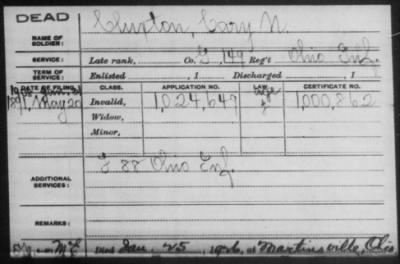 DEAD
NAME OF SOLDIER: Clupton, Cary N.
SERVICE: Late rank, Co. G, 149 Reg't Ohio Inf.
TERM OF SERVICE: Enlisted , 1 Discharged , 1
DATE OF FILING. CLASS. APPLICATION NO. LAW. CERTIFICATE NO.
1891, May 20 Invalid, 1,024,649 1,000,862
Widow,
Minor,
ADDITIONAL SERVICES: F 88 Ohio Inf.
REMARKS:
Died Jan. 25, 1926, at Martinsville, Ohio